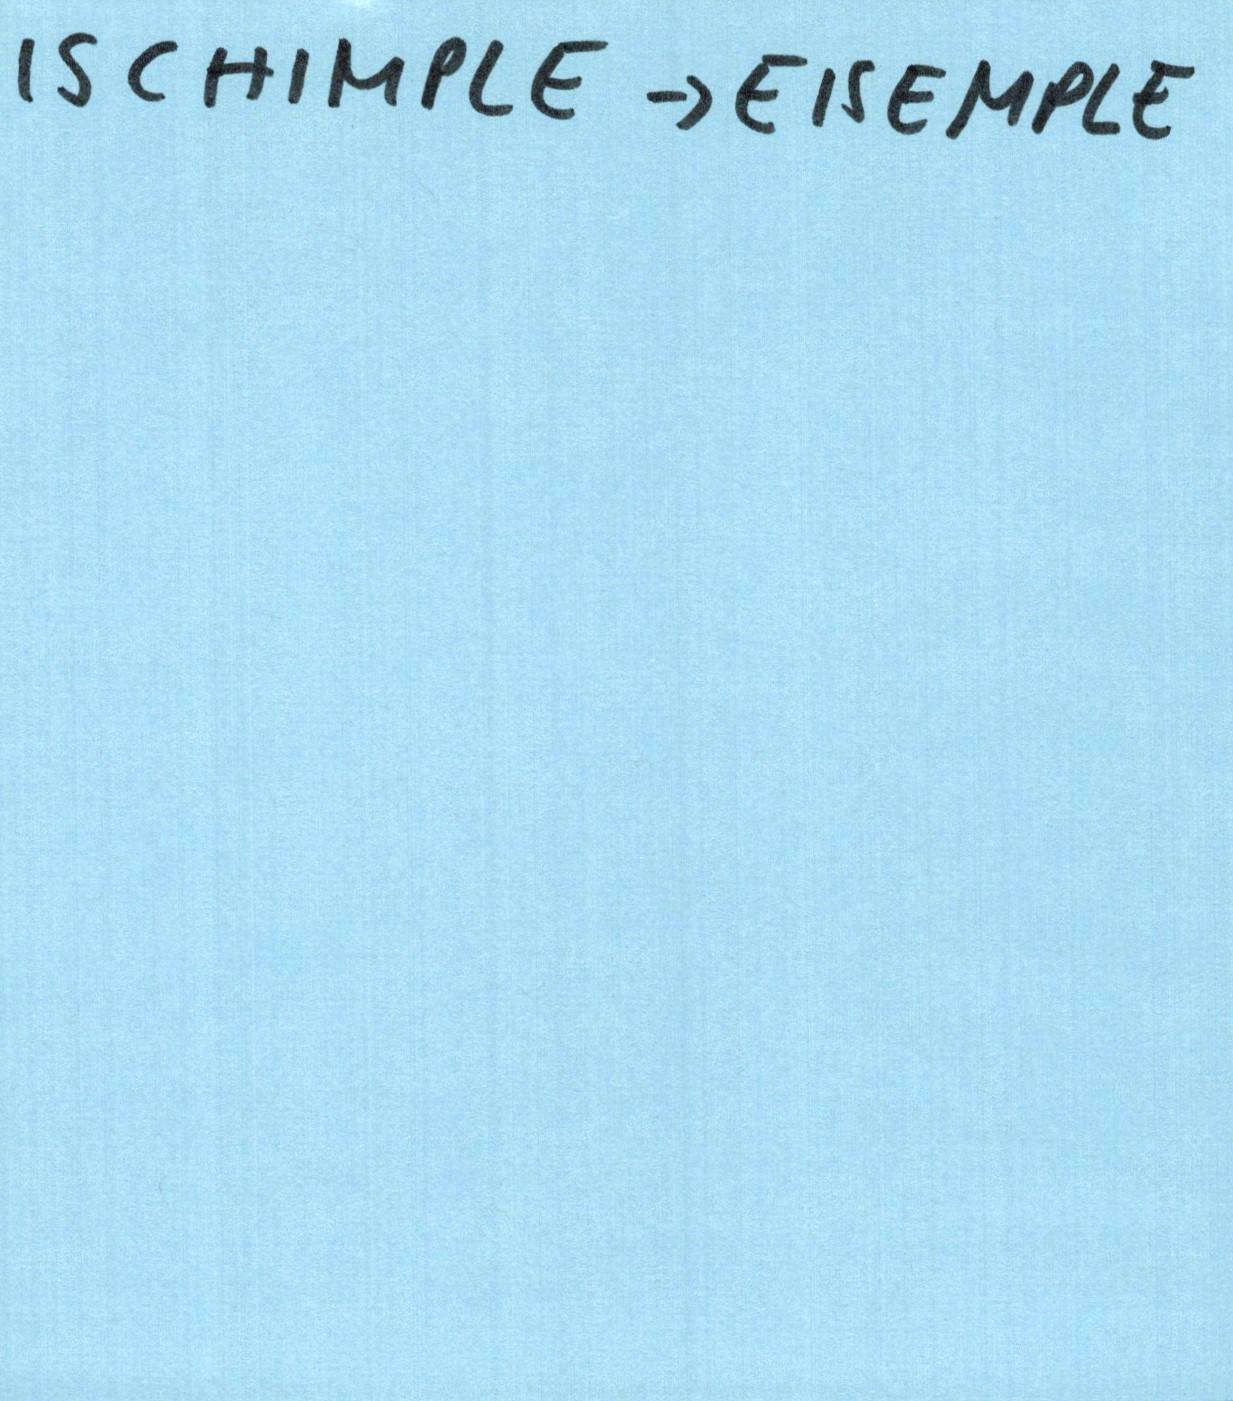 ISCHIMPLE → EISEMPLE